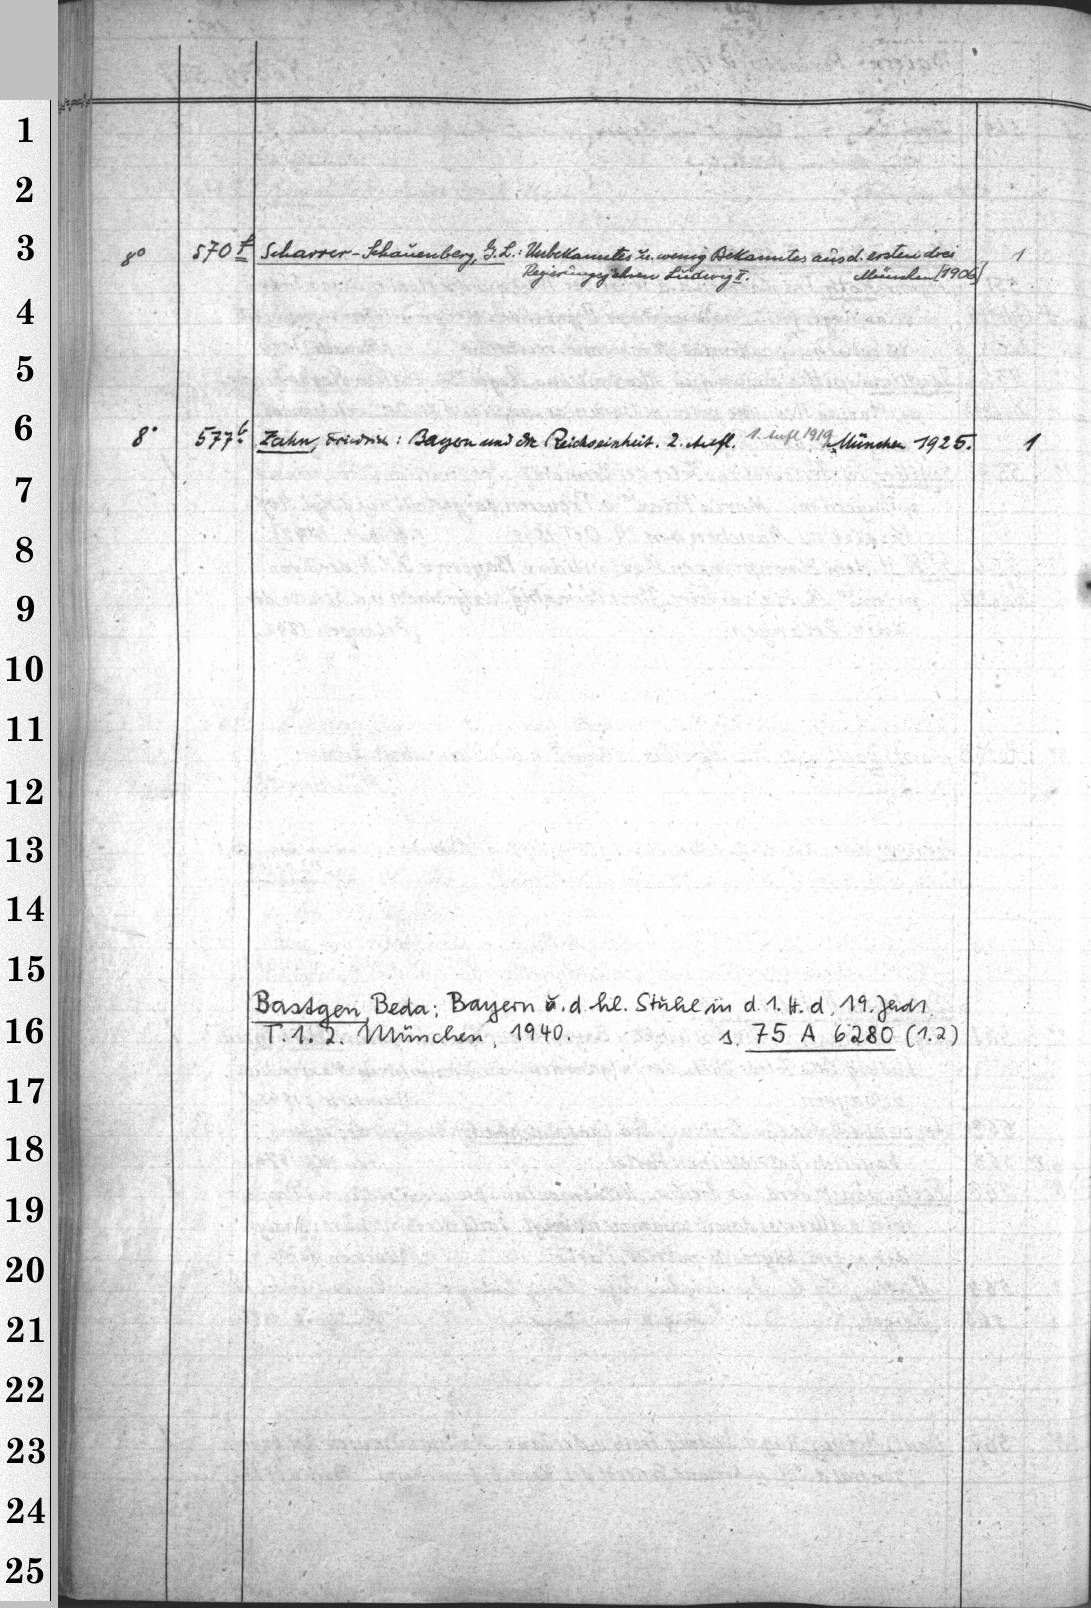 1
2
3
8° 570 f Scharrer-Schauenberg, G.L.: Unbekanntes u. wenig Bekanntes aus d. ersten drei 1
Regierungsjahren Ludwig II. München [1906]
4
5
6
8° 577 b Zahn, Friedrich: Bayern und die Reichseinheit. 2. Aufl. 1. Aufl. 1919 München 1925. 1
7
8
9
10
11
12
13
14
15
Bastgen, Beda: Bayern u. d. hl. Stuhl in d. 1. H. d. 19. Jhdt.
16
T. 1. 2. München, 1940. s. 75 A 6280 (1.2)
17
18
19
20
21
22
23
24
25